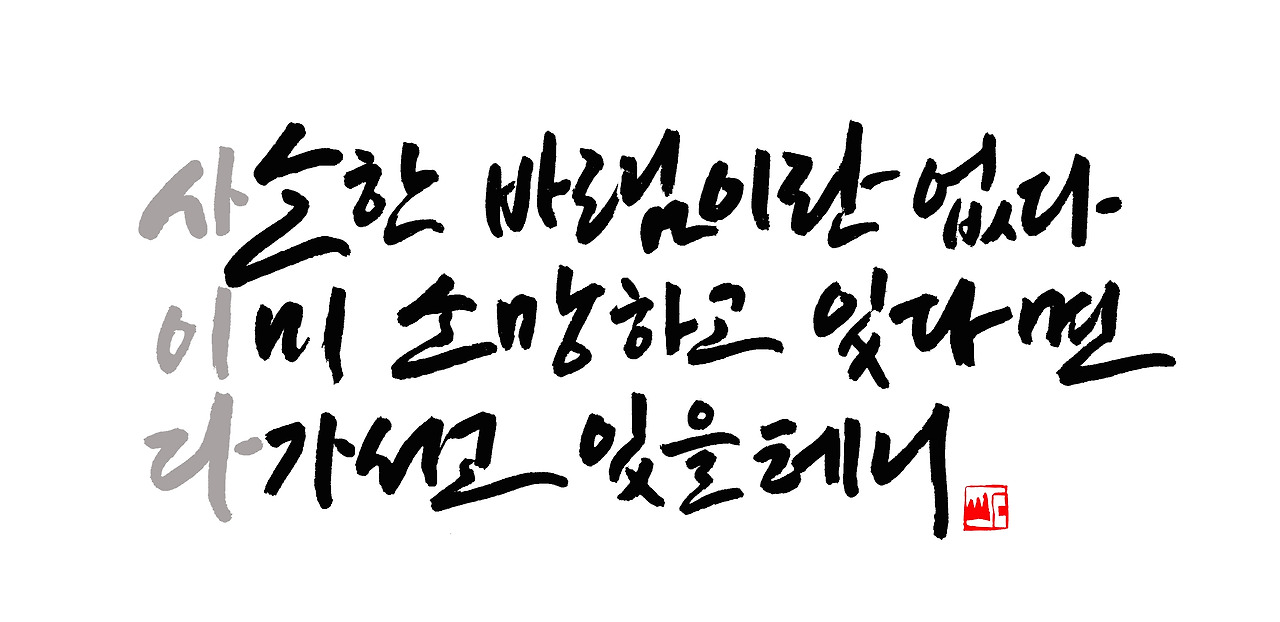 사소한 바램이란 없다
이미 소망하고 있다면
다가서고 있을테니